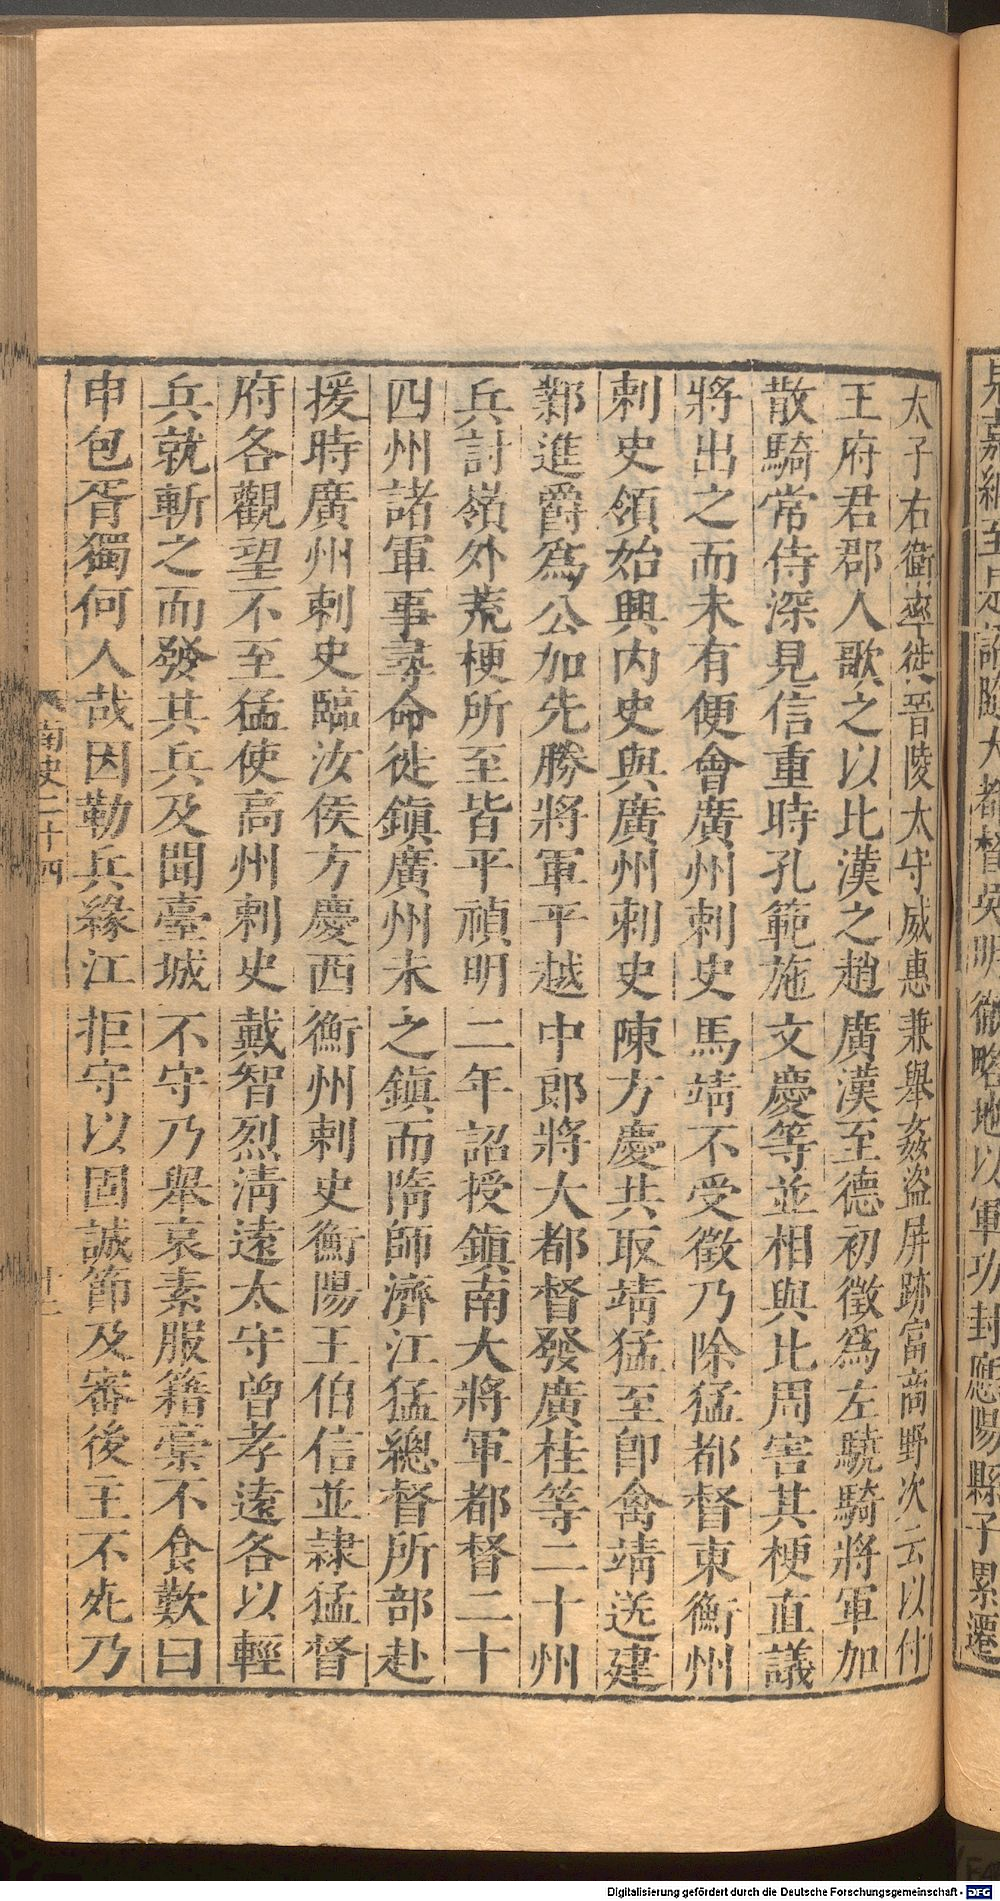 太子右衛率徙晉陵太守威惠兼舉姦盜屏跡富商野次云以付
王府君郡人歌之以比漢之趙廣漢至德初徵爲左驍騎將軍加
散騎常侍深見信重時孔範施文慶等並相與比周害其梗直議
將出之而未有便會廣州刺史馬靖不受徵乃除猛都督東衡州
刺史領始興內史與廣州刺史陳方慶共取靖猛至卽禽靖送建
鄴進爵爲公加先勝將軍平越中郎將大都督發廣桂等二十州
兵討嶺外荒梗所至皆平禎明二年詔授鎭南大將軍都督二十
四州諸軍事尋命徙鎭廣州未之鎭而隋師濟江猛總督所部赴
援時廣州刺史臨汝侯方慶西衡州刺史衡陽王伯信並隸猛督
府各觀望不至猛使高州刺史戴智烈淸遠太守曾孝遠各以輕
兵就斬之而發其兵及聞臺城不守乃舉哀素服籍槀不食歎曰
申包胥獨何人哉因勒兵緣江拒守以固誠節及審後主不死乃
南史二十四
十二
Digitalisierung gefördert durch die Deutsche Forschungsgemeinschaft - DFG